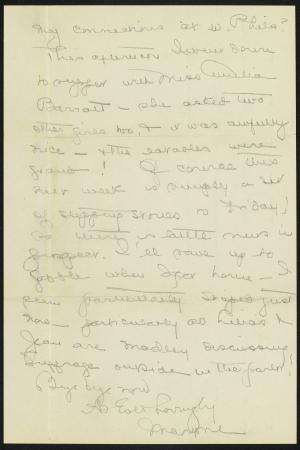 my connections at W. Phila?
This afternoon I went down
to supper with Miss Amelia
Barratt - she asked two
other girls too & it was awfully
nice - & the eatables were
grand! Of course this
next week is simply a
of suppers to Friday!
So there is little news in
I'll save up to
gobble when I get home - I
seem particularly stupid just
now - particularly as Helias &
Jean are madley discussing
suffrage outside in the parlor!
Bye bye now
As Ever Lovingly
Marjorie